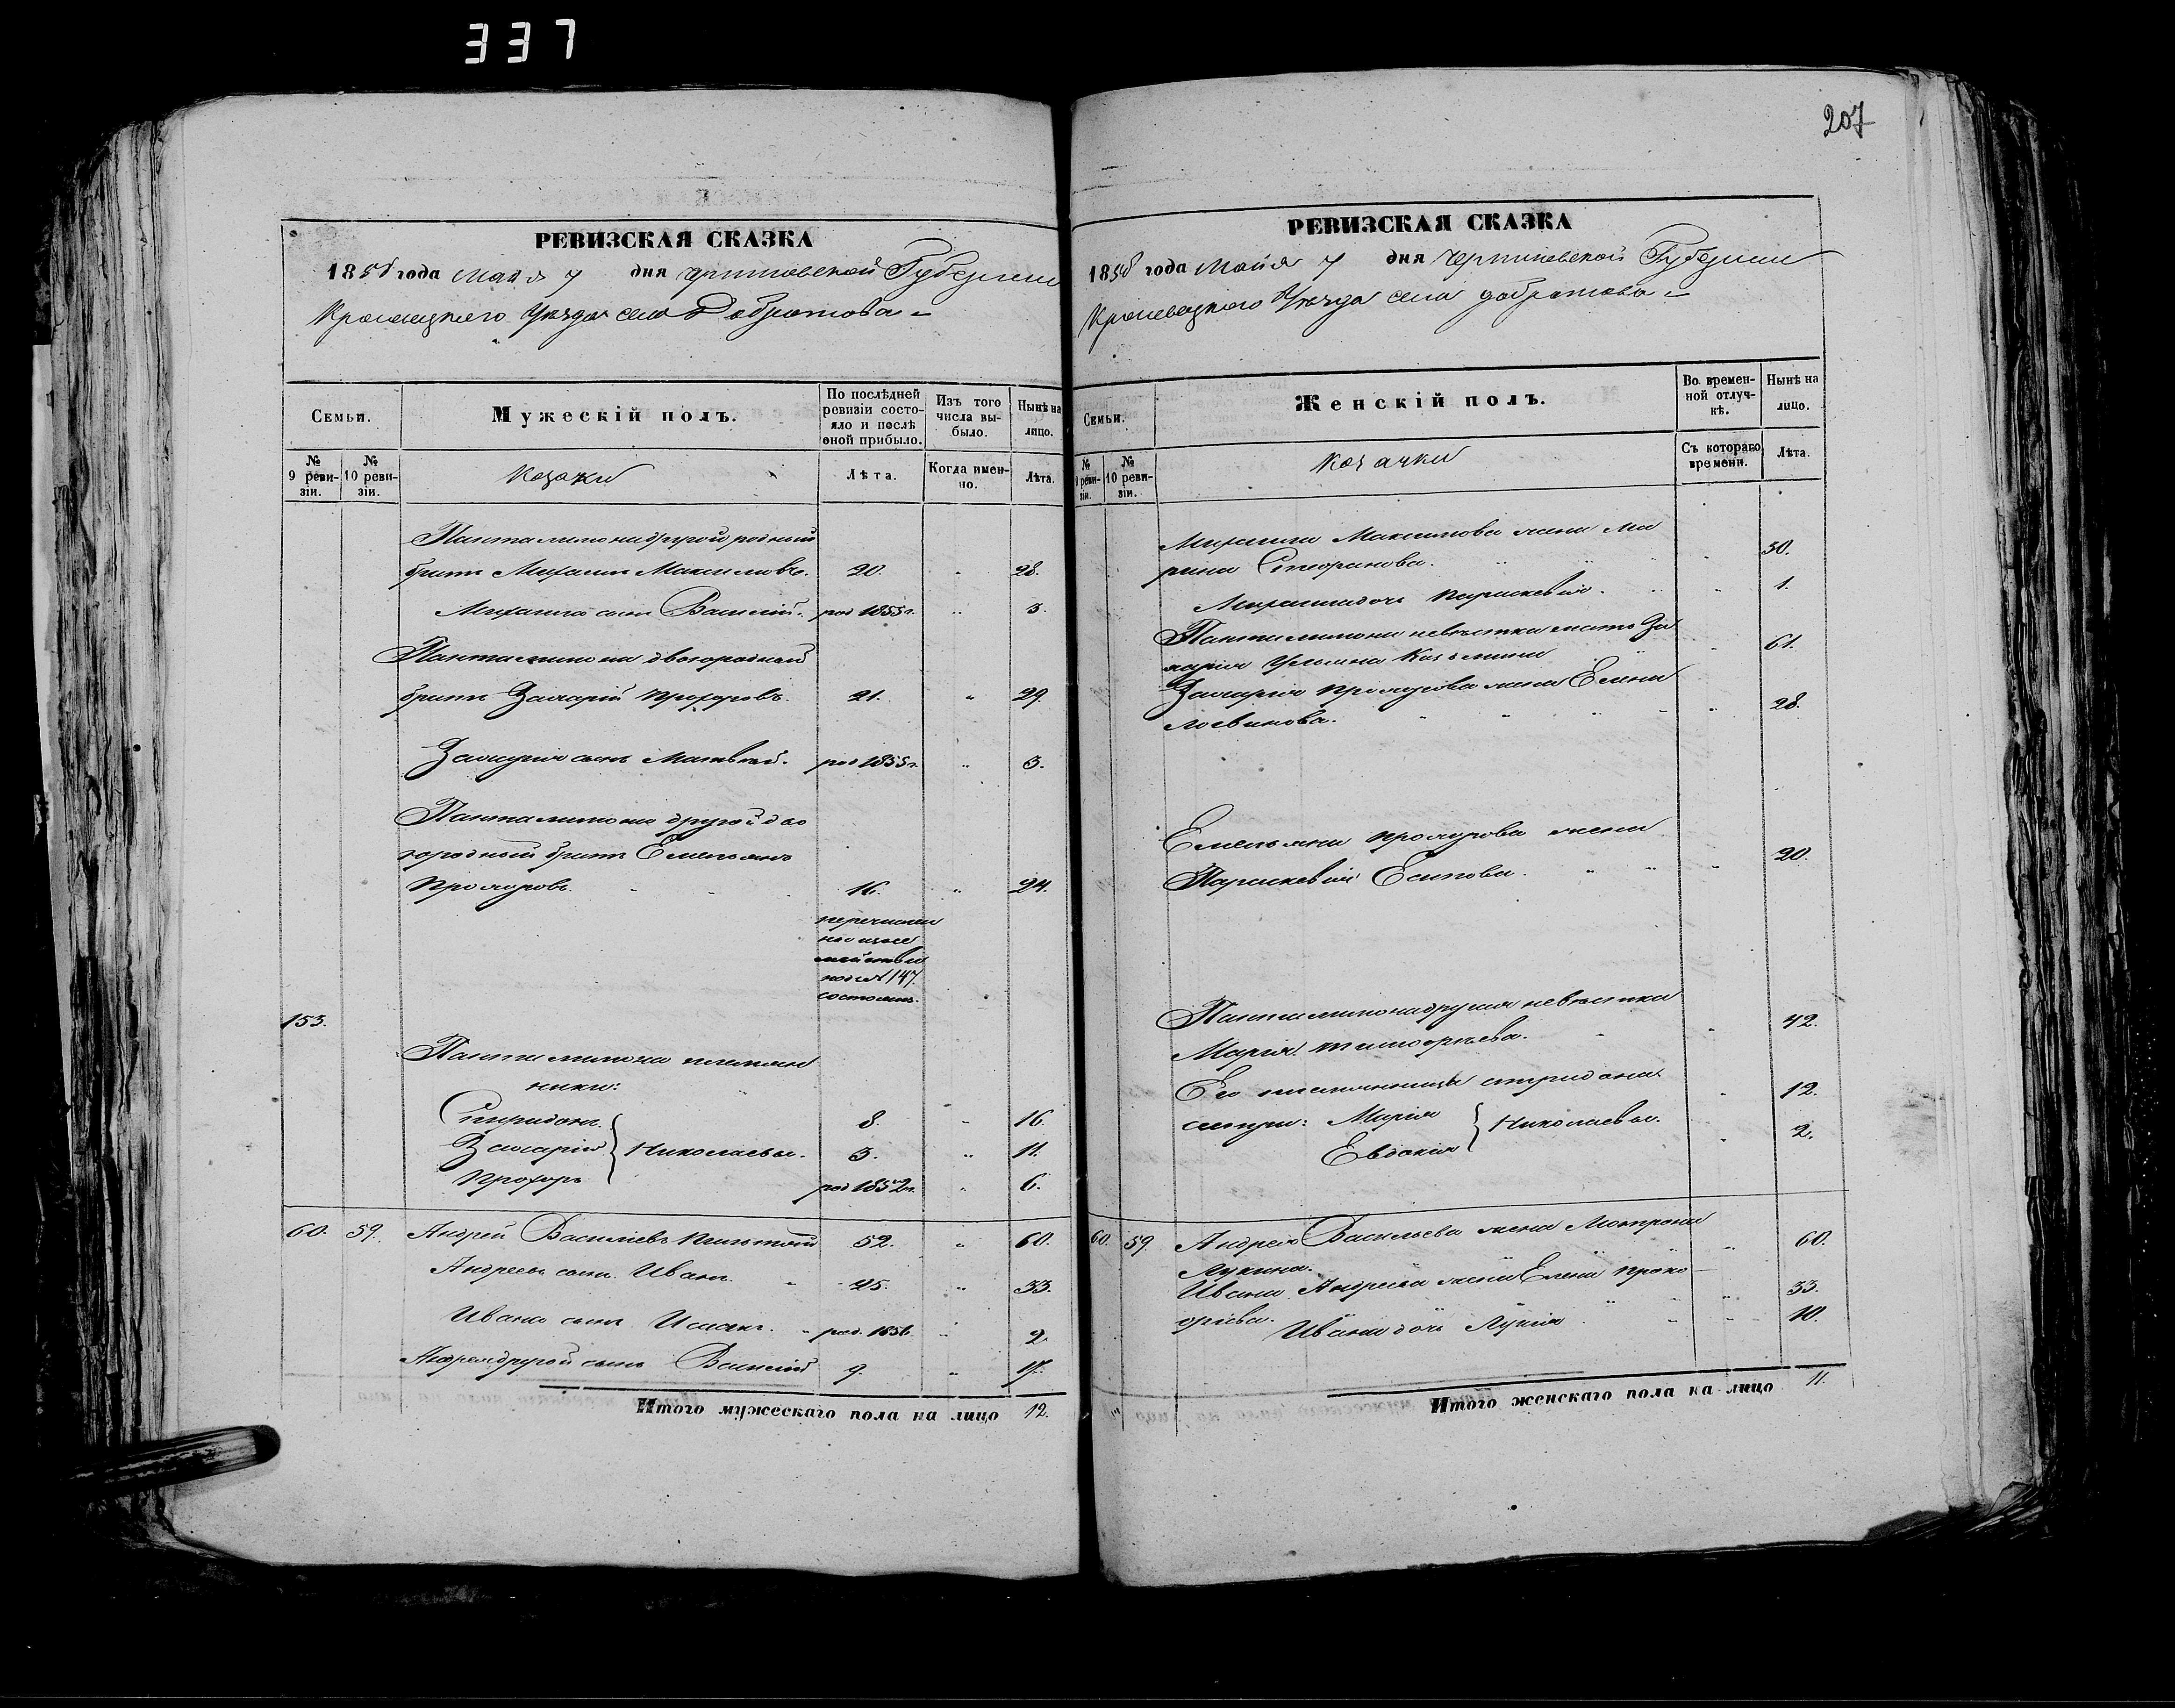 337
207
РЕВИЗСКАЯ СКАЗКА
1858 года Мая 7 дня Черниговской Губернии
Кролевецкого Уезда села Добротова
Семьи.
Мужескій полъ.
По послѣдней ревизіи состояло и послѣ оной прибыло.
Изъ того числа выбыло.
Нынѣ на лицо.
№ 9 ревизіи.
№ 10 ревизіи.
Козаки
Лѣта.
Когда именно.
Лѣта.
Пантилимона другой родный
братъ Михаилъ Максимовъ. 20. " 28.
Михаила сынъ Василій. род 1855 г. " 3.
Пантилимона двоюродный
братъ Захарій Прохоровъ. 21. " 29.
Захарія сынъ Матвей. род 1855 г. " 3.
Пантилимона другой дво
юродный братъ Емельянъ
Прохоровъ. 16. " 24.
перечислен
подъ № 147
состоящ.
153.
Пантилимона племян
ники:
Спиридонъ 8. " 16.
Захарій } Николаевы. 3. " 11.
Прохоръ род 1852 г. " 6.
60. 59. Андрей Василіевъ 52. " 60.
Андрея сынъ Иванъ. 25. " 33.
Ивана сынъ Исаакъ. род. 1856 " 2.
Андрея другой сынъ Василій 9. " 17.
Итого мужескаго пола на лицо 12.
РЕВИЗСКАЯ СКАЗКА
1858 года Мая 7 дня Черниговской Губернии
Кролевецкого Уезда села Добротова
Семьи.
Женскій полъ.
Во временной отлучкѣ.
Нынѣ на лицо.
№ 9 ревизіи.
№ 10 ревизіи.
Козачки
Съ котораго времени.
Лѣта.
Михаила Максимова жена Ма
рина Стефанова. " 30.
Михаила дочь Параскевія. " 1.
Пантилимона невѣстка мать За
харія Ульяна Козьмина " 61.
Захарія Прохорова жена Елена
Логвинова. " 28.
Емельяна Прохорова жена
Параскевія Есипова. " 20.
Пантилимона другая невѣстка
Марія Тимофеева. " 42.
Его племянницы Спиридона
сестры: Марія } Николаевы. " 12.
Евдокія " 2.
60. 59. Андрея Васильева жена Мотрона
Лукина. " 60.
Ивана Андреева жена Елена Проко
фіева. " 33.
Ивана дочь Лукія " 10.
Итого женскаго пола на лицо 11.